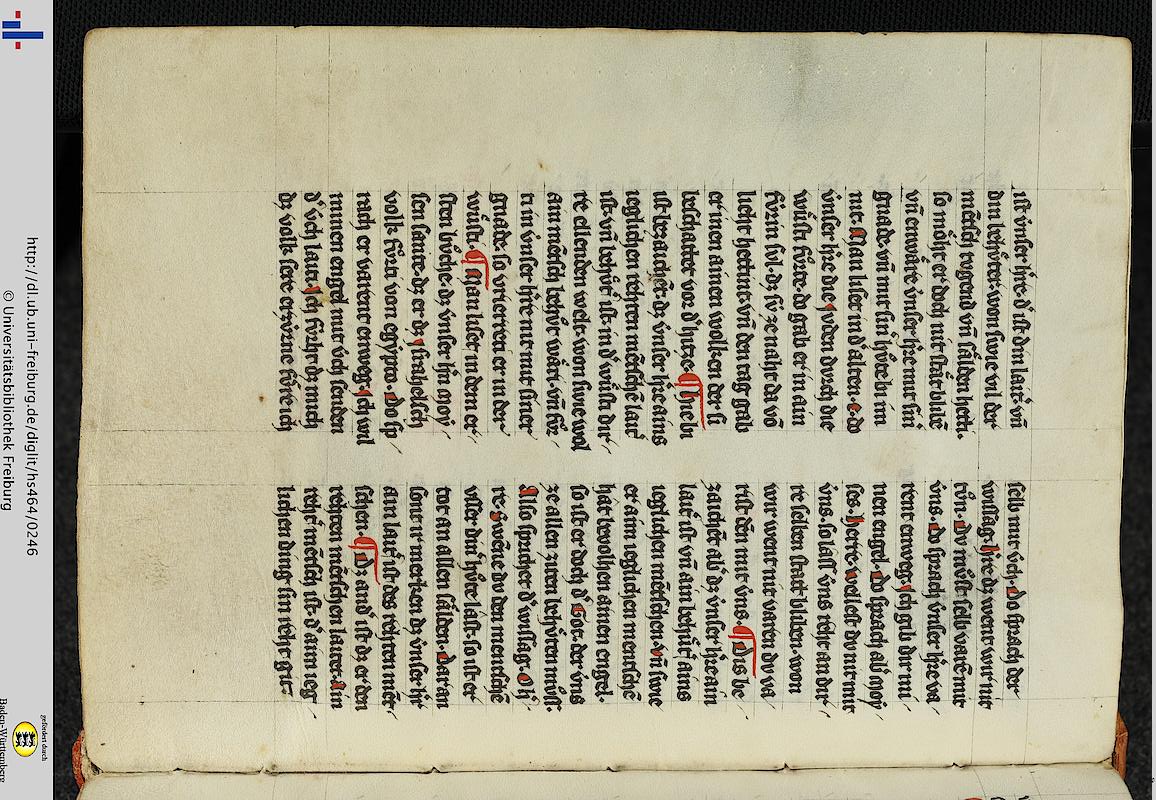 ist vnser h're. d' ist din lait' vn̄
din behv̊ter. won swie vil der
mēsch tvgend vn̄ sälden hetti.
so mo̊ht er doch nit stät blibē
vn̄ enwäre vnser h're mit sin
gnade. vn̄ mit sin' hv̊te bi im
nit. Man liset in d' alten .e. do
vnser h're die ivden dvrch die
wu̍sti fu̍rte. do gab er in ain
fv̍rin svl. dz sv̍ ze naht da vō
lieht hettint. vn̄ den tag gab
er inen ainen wolken der si
beschattet vor d' hitze. ¶ Hie bi
ist bezaichet. dz vnser h're ains
ieglichen rehten mēschē lait'
ist. vn̄ behv̊t' ist. in d' wu̍sti dir'
re ellenden welt. won swie wol
ain mēsch behv̊t wäri. vn̄ fv̊r
ti in vnser h're nit mit siner
gnade. so v'irreti er in der
wu̍sti. ¶ Man liset in dem er
sten bv̊che. dz vnser h're moy
sen sante. dz er dz israhelsch
volk fv̊rti von egypto. Do sp
rach er varent enweg. ich wil
minen engel mit v̍ch senden
d' v̍ch laiti. Jch fv̍rht dz mich
dz volk sere erzv̍rne fv̊re ich
selb mit v̍ch. Do sprach der
wissag. h're dz went wir nit
tv̊n. Dv mv̊st selb varē mit
vns. Do sprach vnser h're va
rent enweg. ich gib dir mi
nen engel. Do sprach ab' moy
ses. Herre wellest dv nit mit
vns. so lass' vns reht an dir'
re selben stat bliben. won
wir went nit varen dv va
rist dēn mit vns. ¶ Dis be
zaichet als dz vnser h're ain
lait' ist vn̄ ain behv̊t' ains
ieglichen mēschen. vn̄ swie
er aim ieglichen menschē
hat bevolhen ainen engel.
so ist er doch d' Got. der vns
ze allen ziten behv̊ten mv̊ss.
Also sprichet d' wissag. Oh'
re. swene dv den menschē
vsser din' hv̊te last. so ist er
tot an allen sälden. Dar an
sont ir merken dz vnser h'r
ain lait' ist des rehten mēn
schen. ¶ Dz and' ist dz er den
rehten mēschen laitet. Ain
reht' mēsch ist. d' aim ieg
lichen ding sin reht git.
http://dl.ub.uni-freiburg.de/diglit/hs464/0246
© Universitätsbibliothek Freiburg
gefördert durch
Baden-Württemberg